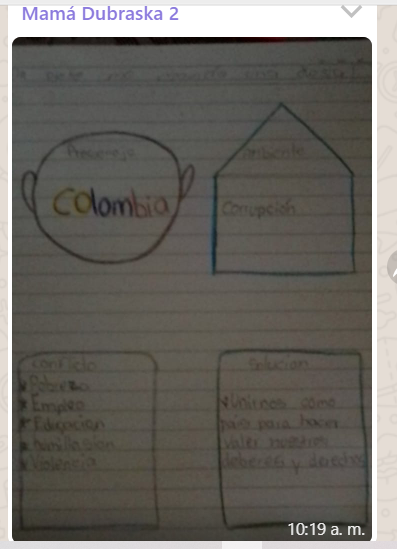 Mamá Dubraska 2
Personaje
Colombia
ambiente
Corrupcion
Conflicto
* Pobreza
* Empleo
* Educacion
* humillasion
* Violencia
Solucion
* Unirnos como
pais para hacer
valer nuestros
deberes y derechos
10:19 a. m.